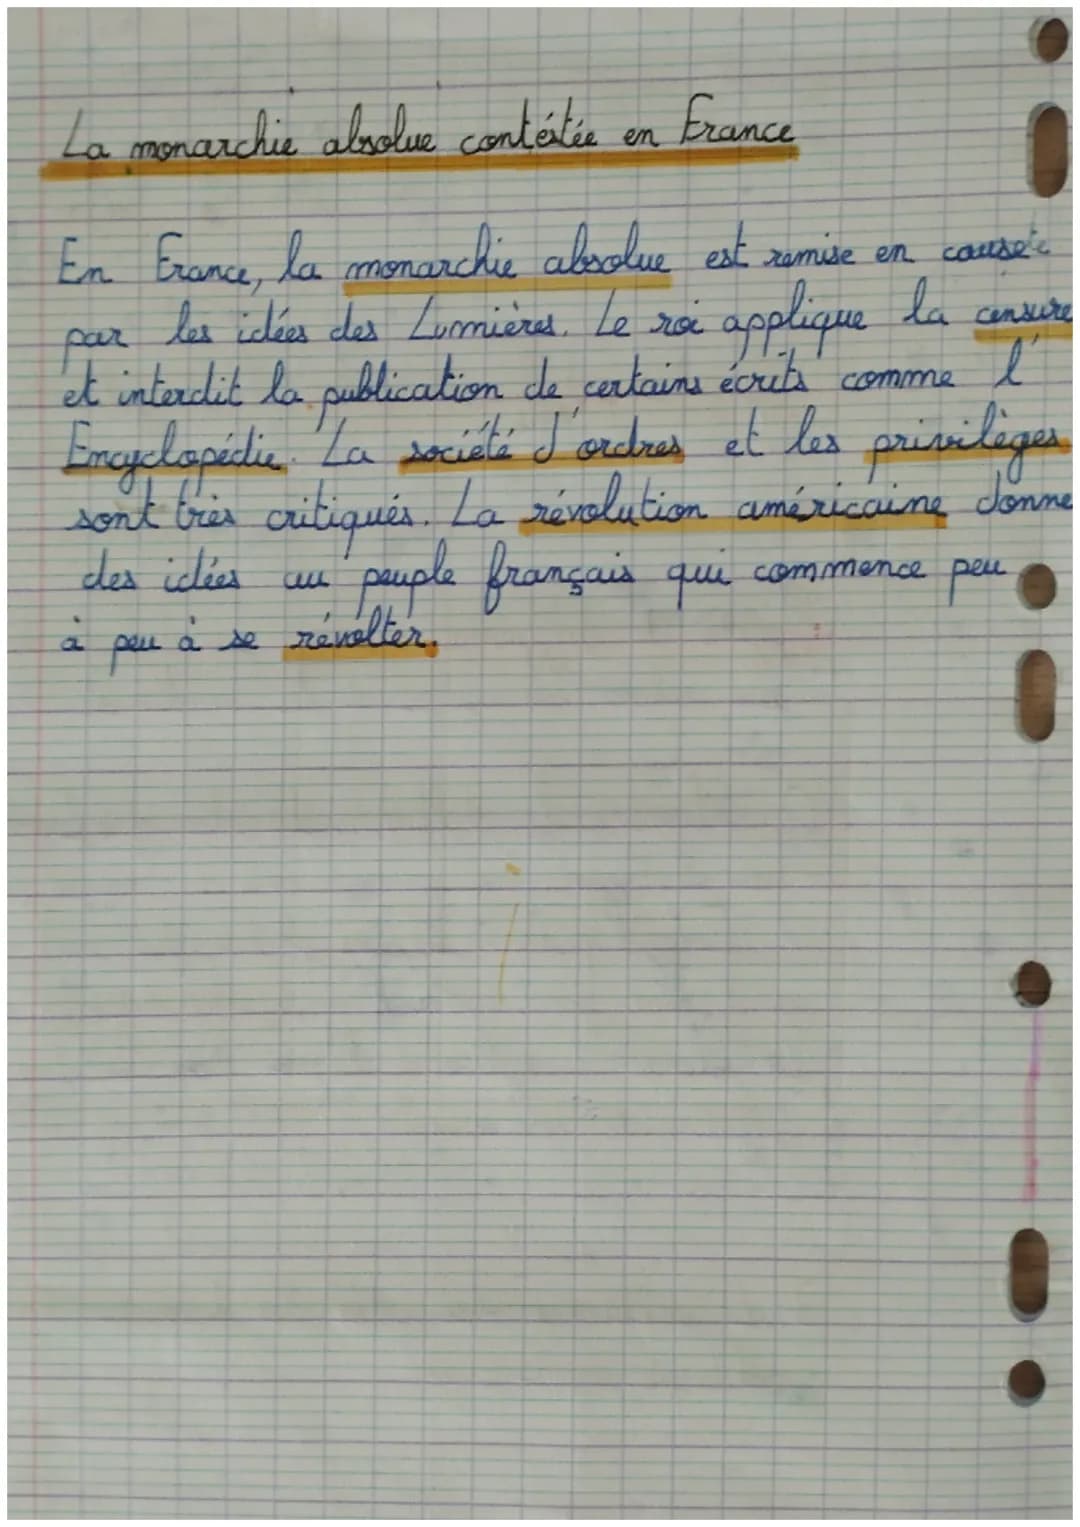 La monarchie absolue contéstée en France
En France, la monarchie absolue est remise en cause
par les idées des Lumières. Le roi applique la censure
et interdit la publication de certains écrits comme l'
Encyclopédie. La société d'ordres et les privilèges
sont très critiqués. La révolution américaine donne
des idées au peuple français qui commence peu
à peu à se révolter.